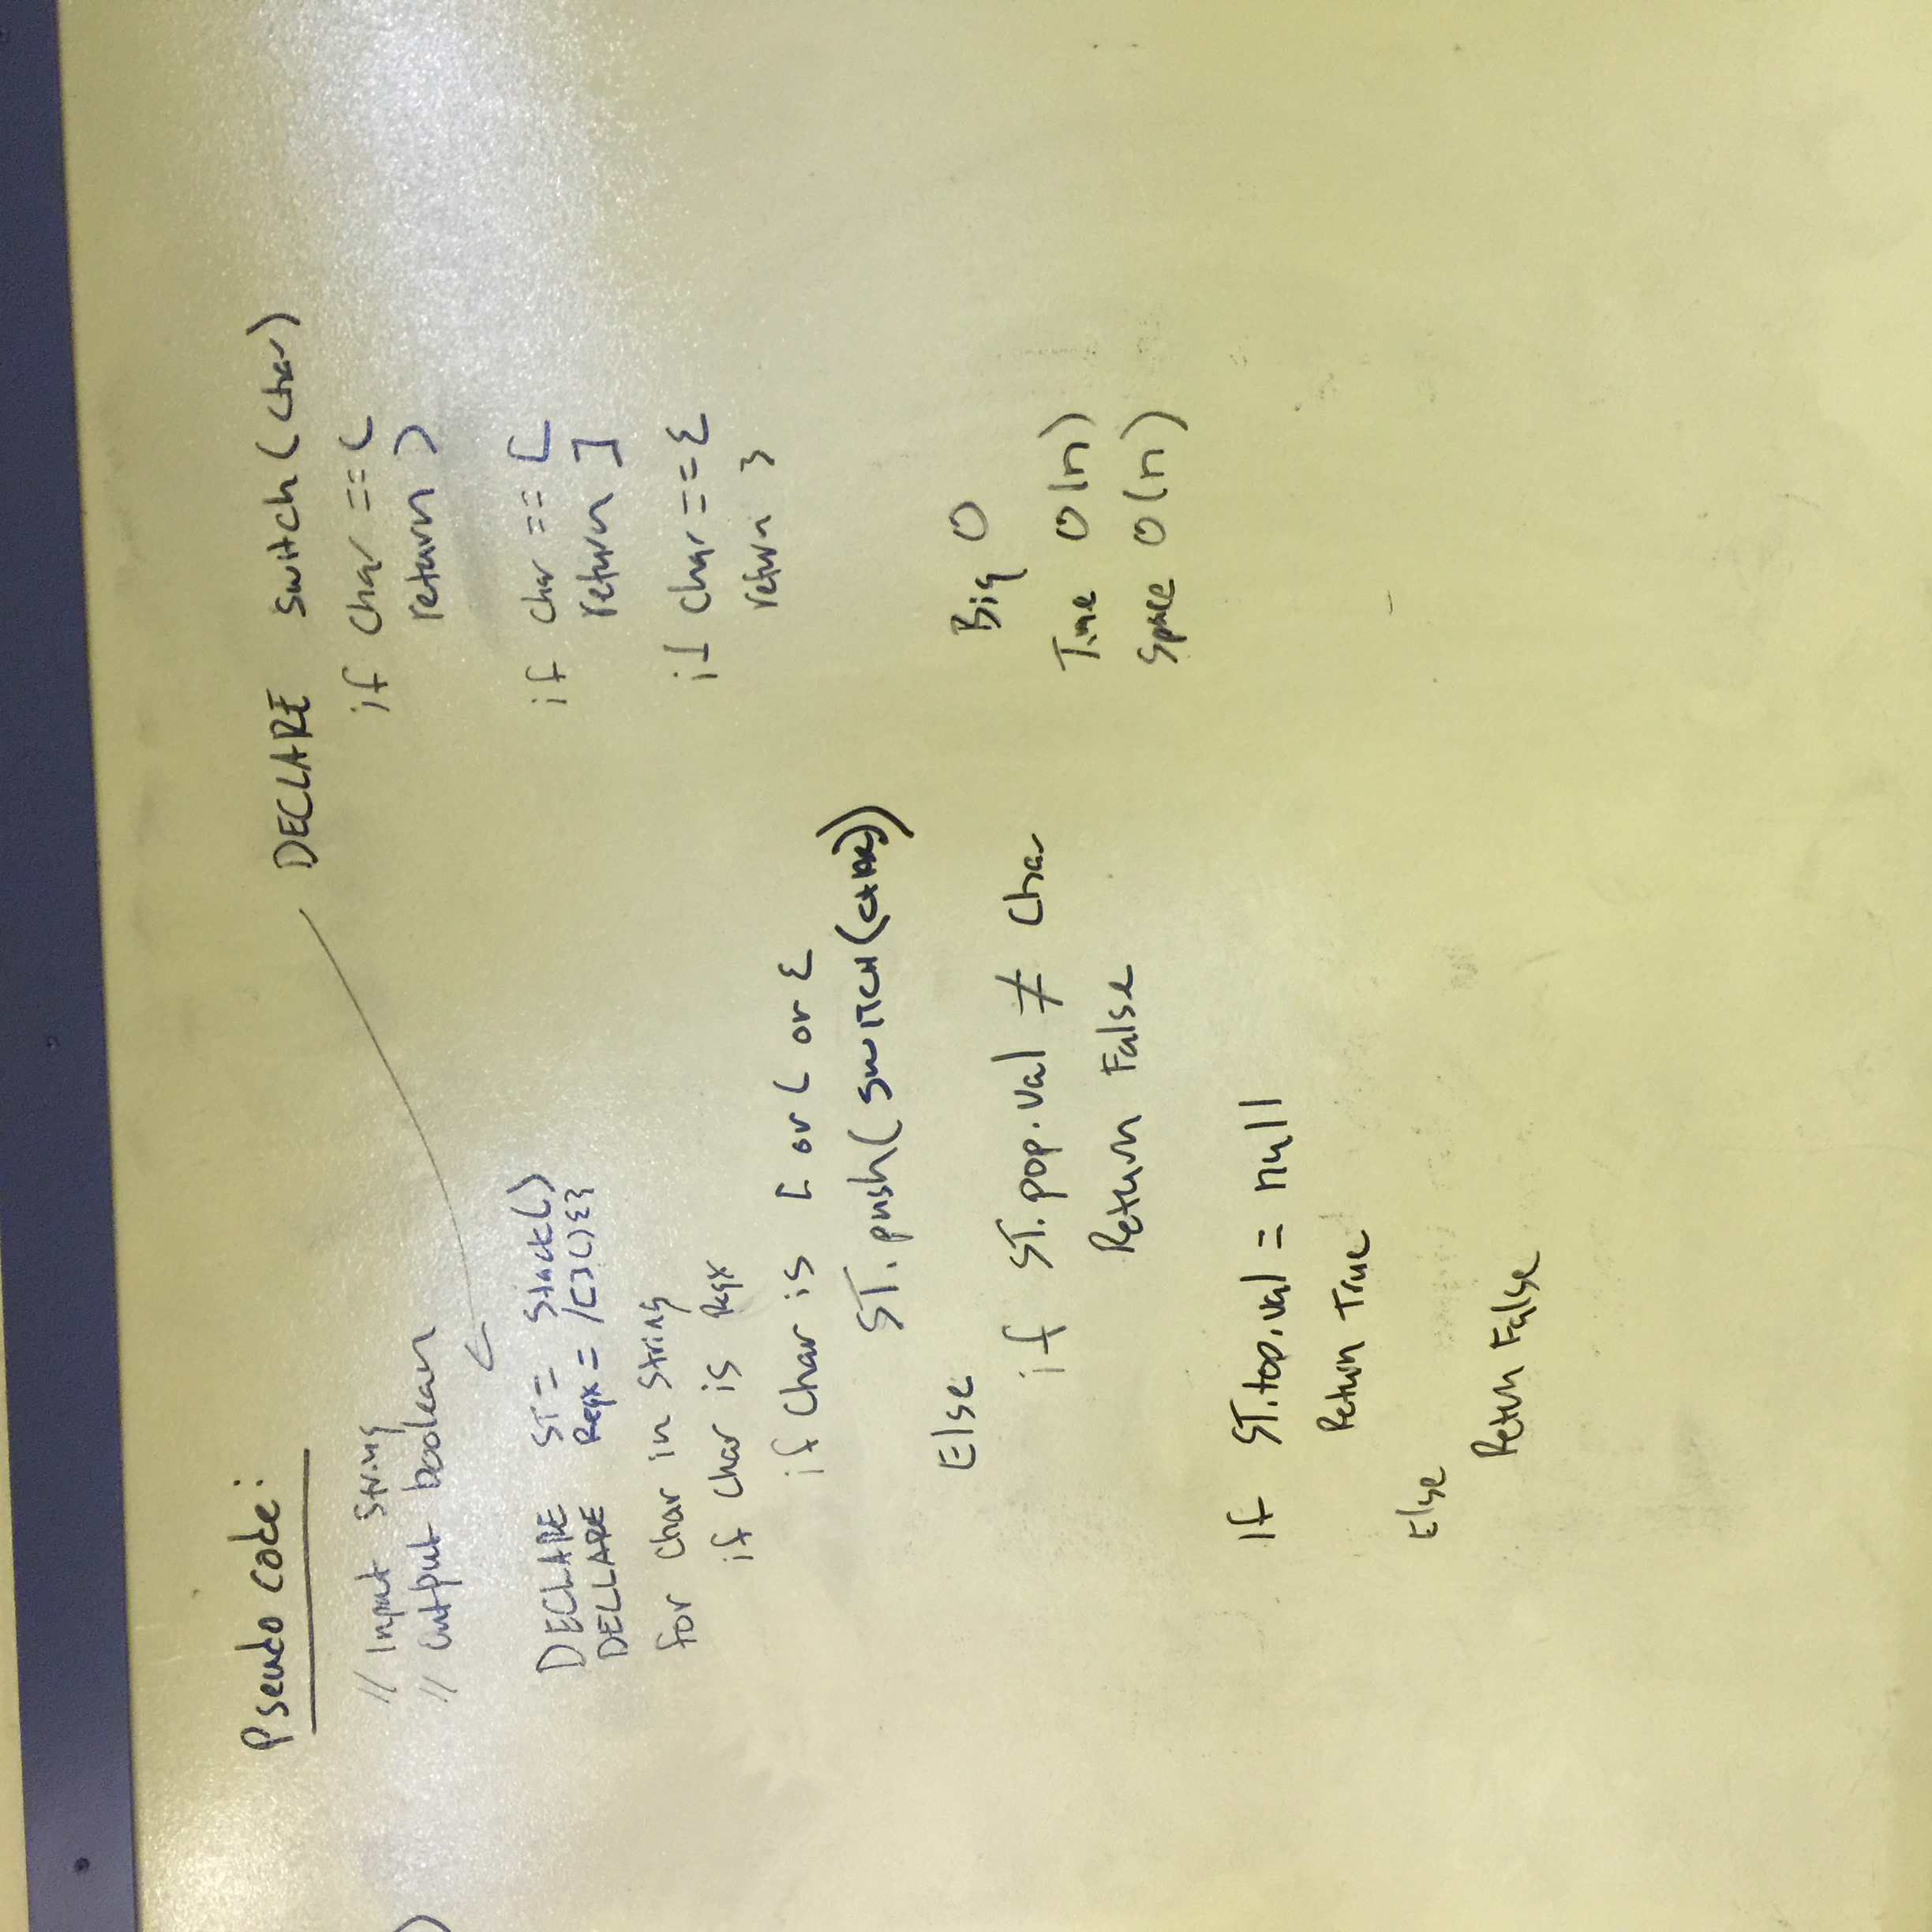 Pseudo code:
// Input String
// Output boolean
DECLARE ST = Stack()
DELLARE Regx = /[](){}
for char in string
if char is Regx
if char is [ or ( or {
ST.push(SWITCH(CHAR))
Else
if ST.pop.val ≠ char
Return False
If ST.top.val = null
Return True
Else
Return False
DECLARE switch(char)
if char == (
return )
if char == [
return ]
if char == {
return }
Big O
Time O(n)
Space O(n)